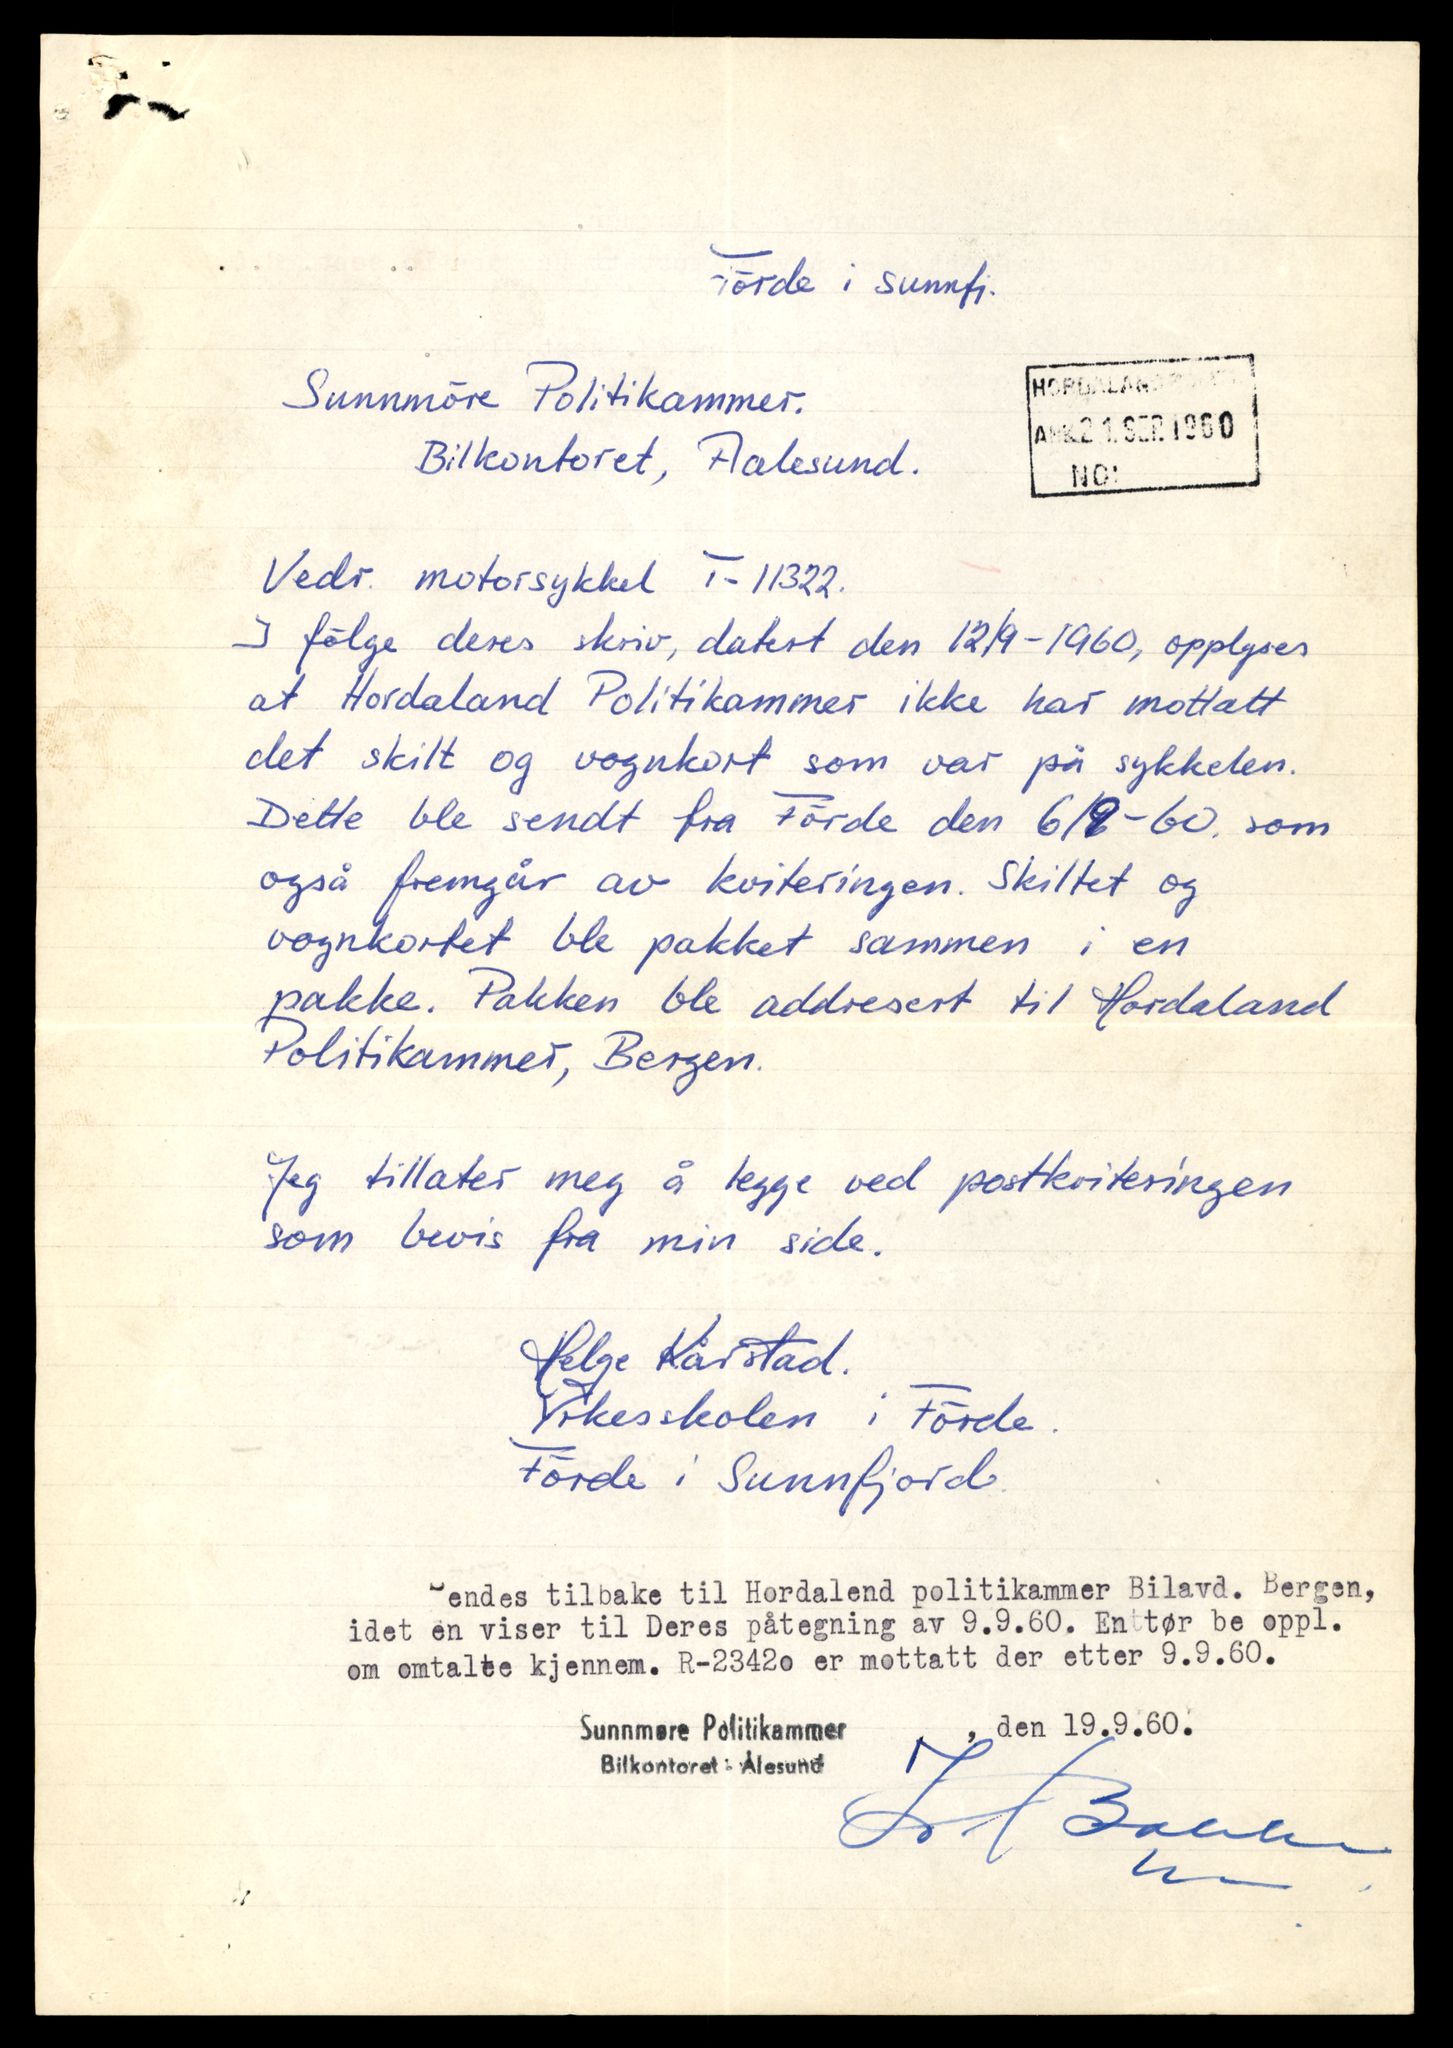 Förde i sunnfj.
Sunnmöre Politikammer.
Bilkontoret, Aalesund.
HORDALAND
ANK. 21. SEP. 1960
NO:
Vedr. motorsykkel T-11322.
I følge deres skriv, datert den 12/9-1960, opplyses
at Hordaland Politikammer ikke har mottatt
det skilt og vognkort som var på sykkelen.
Dette ble sendt fra Förde den 6/9-60. som
også fremgår av kviteringen. Skiltet og
vognkortet ble pakket sammen i en
pakke. Pakken ble addresert til Hordaland
Politikammer, Bergen.
Jeg tillater meg å legge ved postkviteringen
som bevis fra min side.
Helge Kårstad.
Yrkesskolen i Förde.
Förde i Sunnfjord.
Sendes tilbake til Hordalend politikammer Bilavd. Bergen,
idet en viser til Deres påtegning av 9.9.60. Enttør be oppl.
om omtalte kjennem. R-2342o er mottatt der etter 9.9.60.
Sunnmøre Politikammer , den 19.9.60.
Bilkontoret - Ålesund